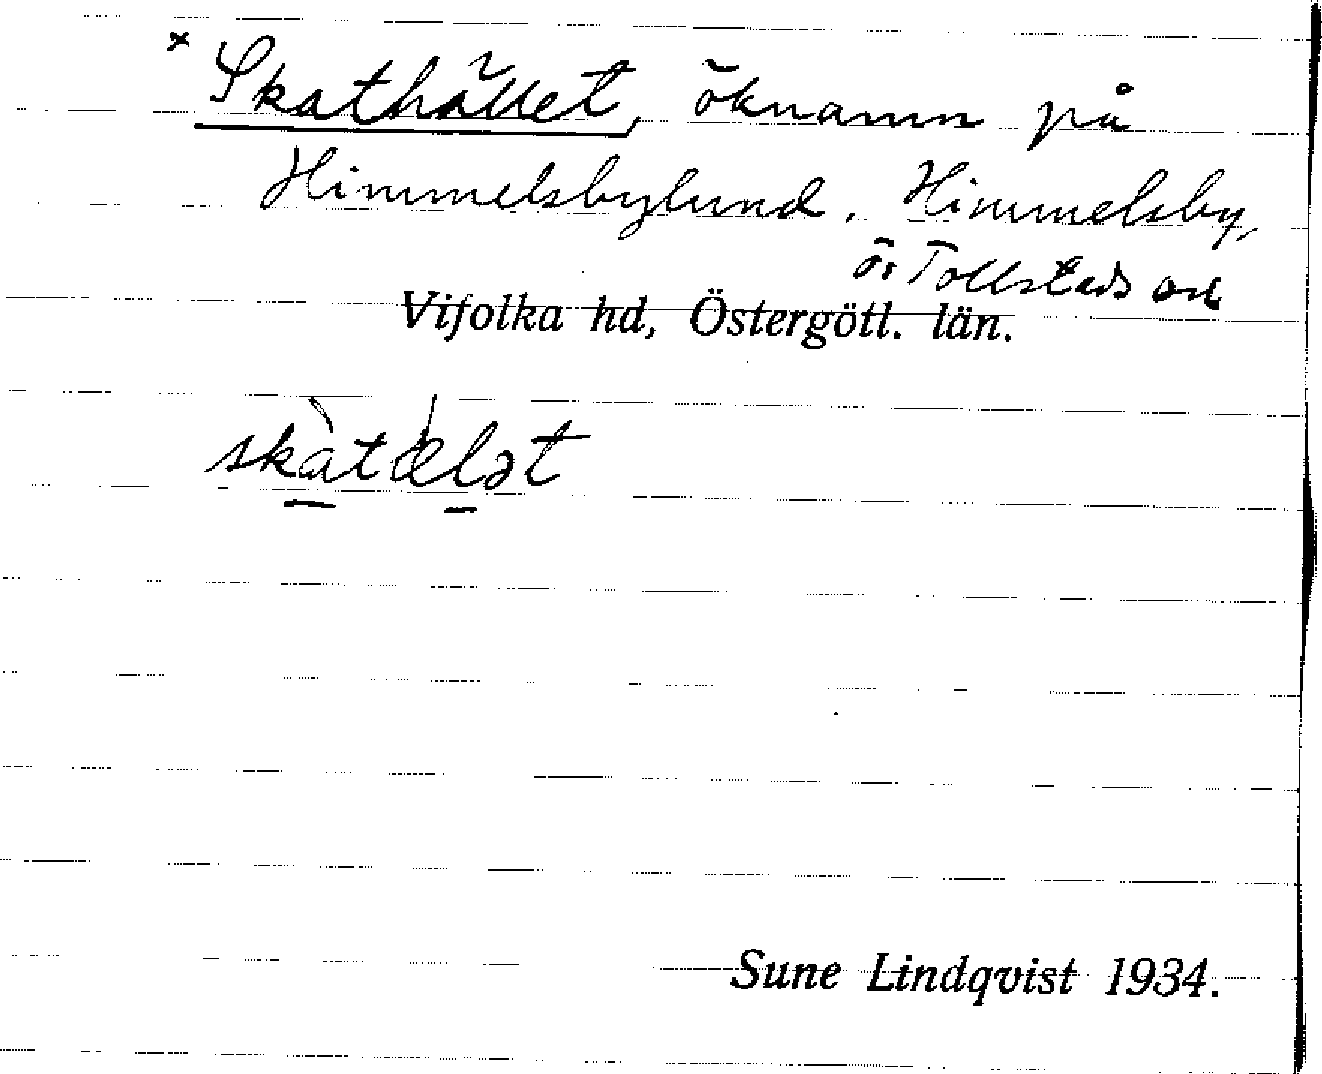 × Skathället, öknamn på
Himmelsbylund, Himmelsby,
Ö. Tollstads
Vifolka hd, Östergötl. län.
skàtælət
Sune Lindqvist 1934.